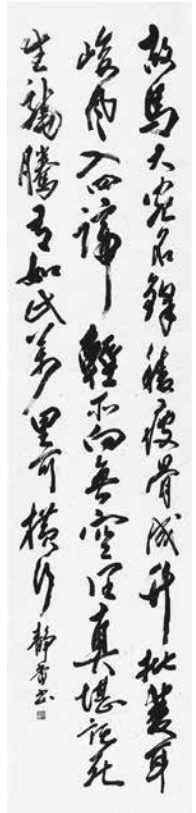 胡馬大宛名鋒稜瘦骨成竹批雙耳
峻風入四蹄輕所向無空闊真堪託死
生驍騰有如此萬里可橫行 靜香书